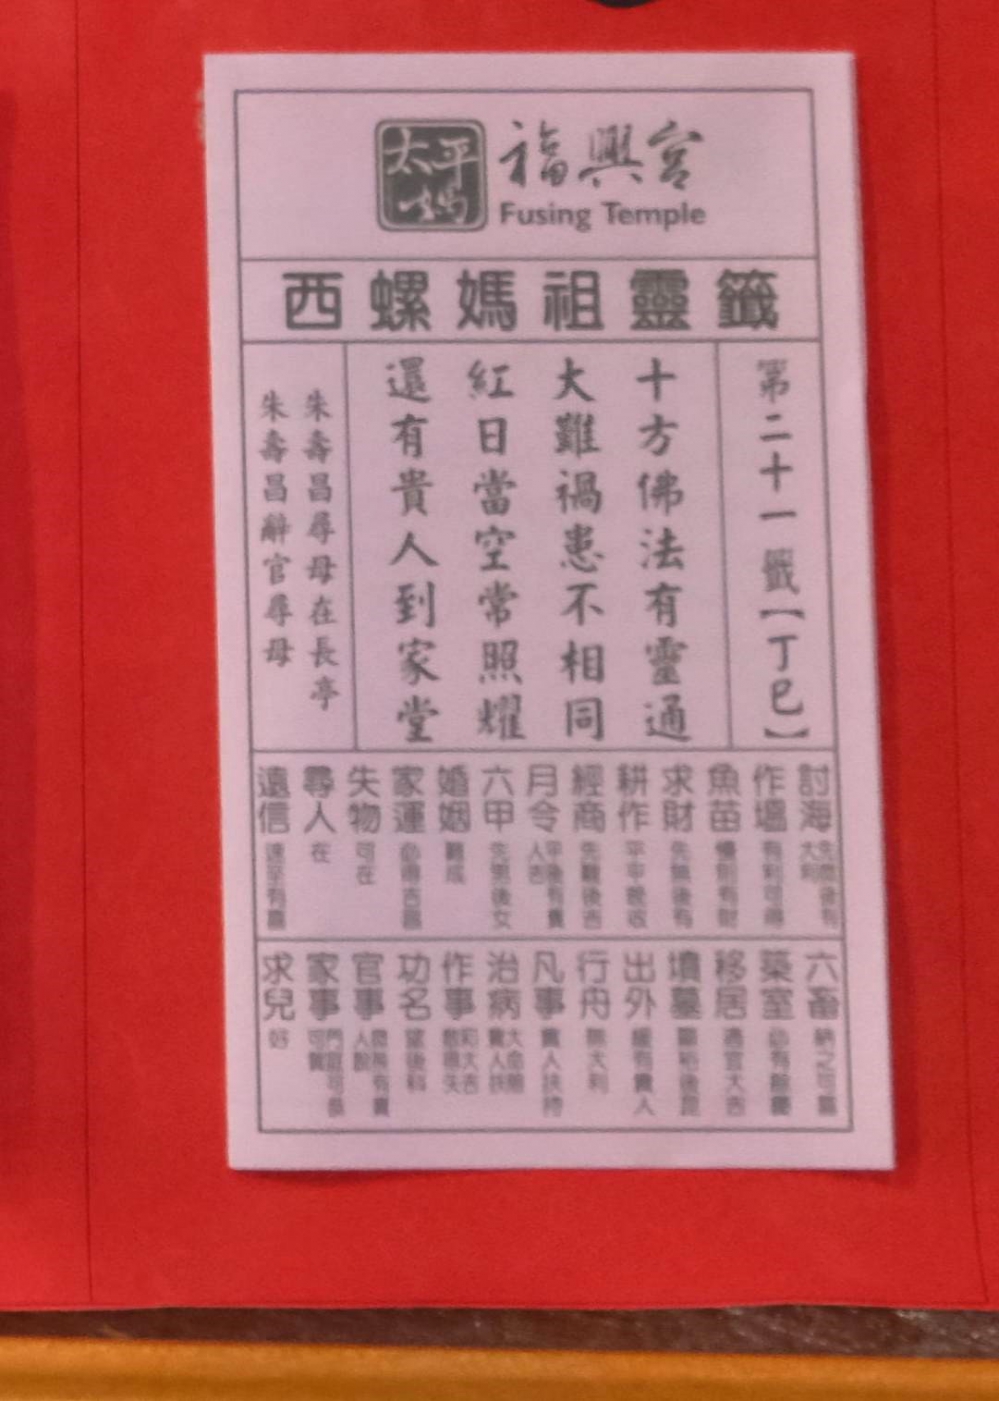 太平媽
福興宮
Fusing Temple
西螺媽祖靈籤
第二十一籤【丁巳】
十方佛法有靈通
大難禍患不相同
紅日當空常照耀
還有貴人到家堂
朱壽昌尋母在長亭
朱壽昌辭官尋母
討海 先微後有大利
作塭 有利可得
魚苗 有財
求財 先無後有
耕作 平平晚收
經商 先難後吉
月令 平後有貴人吉
六甲 先男後女
婚姻 難成
家運 必得吉昌
失物 可在
尋人 在
遠信 速至有喜
六畜 納之可
築室 必有餘慶
移居 適宜大吉
墳墓
出外 有貴人
行舟 無大利
凡事 貴人扶持
治病 大命險貴人扶
作事 和大吉
功名 望後科
官事 有貴人
家事 門庭可
求兒 好